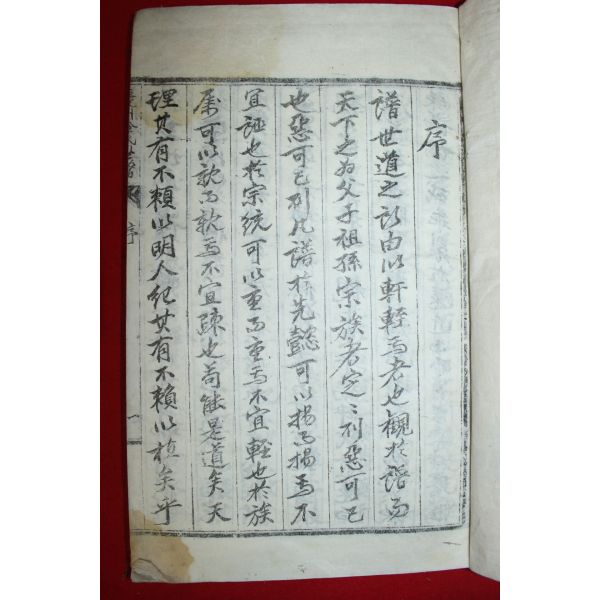 序
譜世道之所由以軒輊焉者也觀於譜而
天下之爲父子祖孫宗族者定〻則惡可已
也惡可已則凡譜於先懿可以揚而揚焉不
宜誣也於宗統可以重而重焉不宜輕也於族
屬可以款而款焉不宜疎也苟能是道矣天
理其有不賴以明人紀其有不賴以植矣乎
序
一